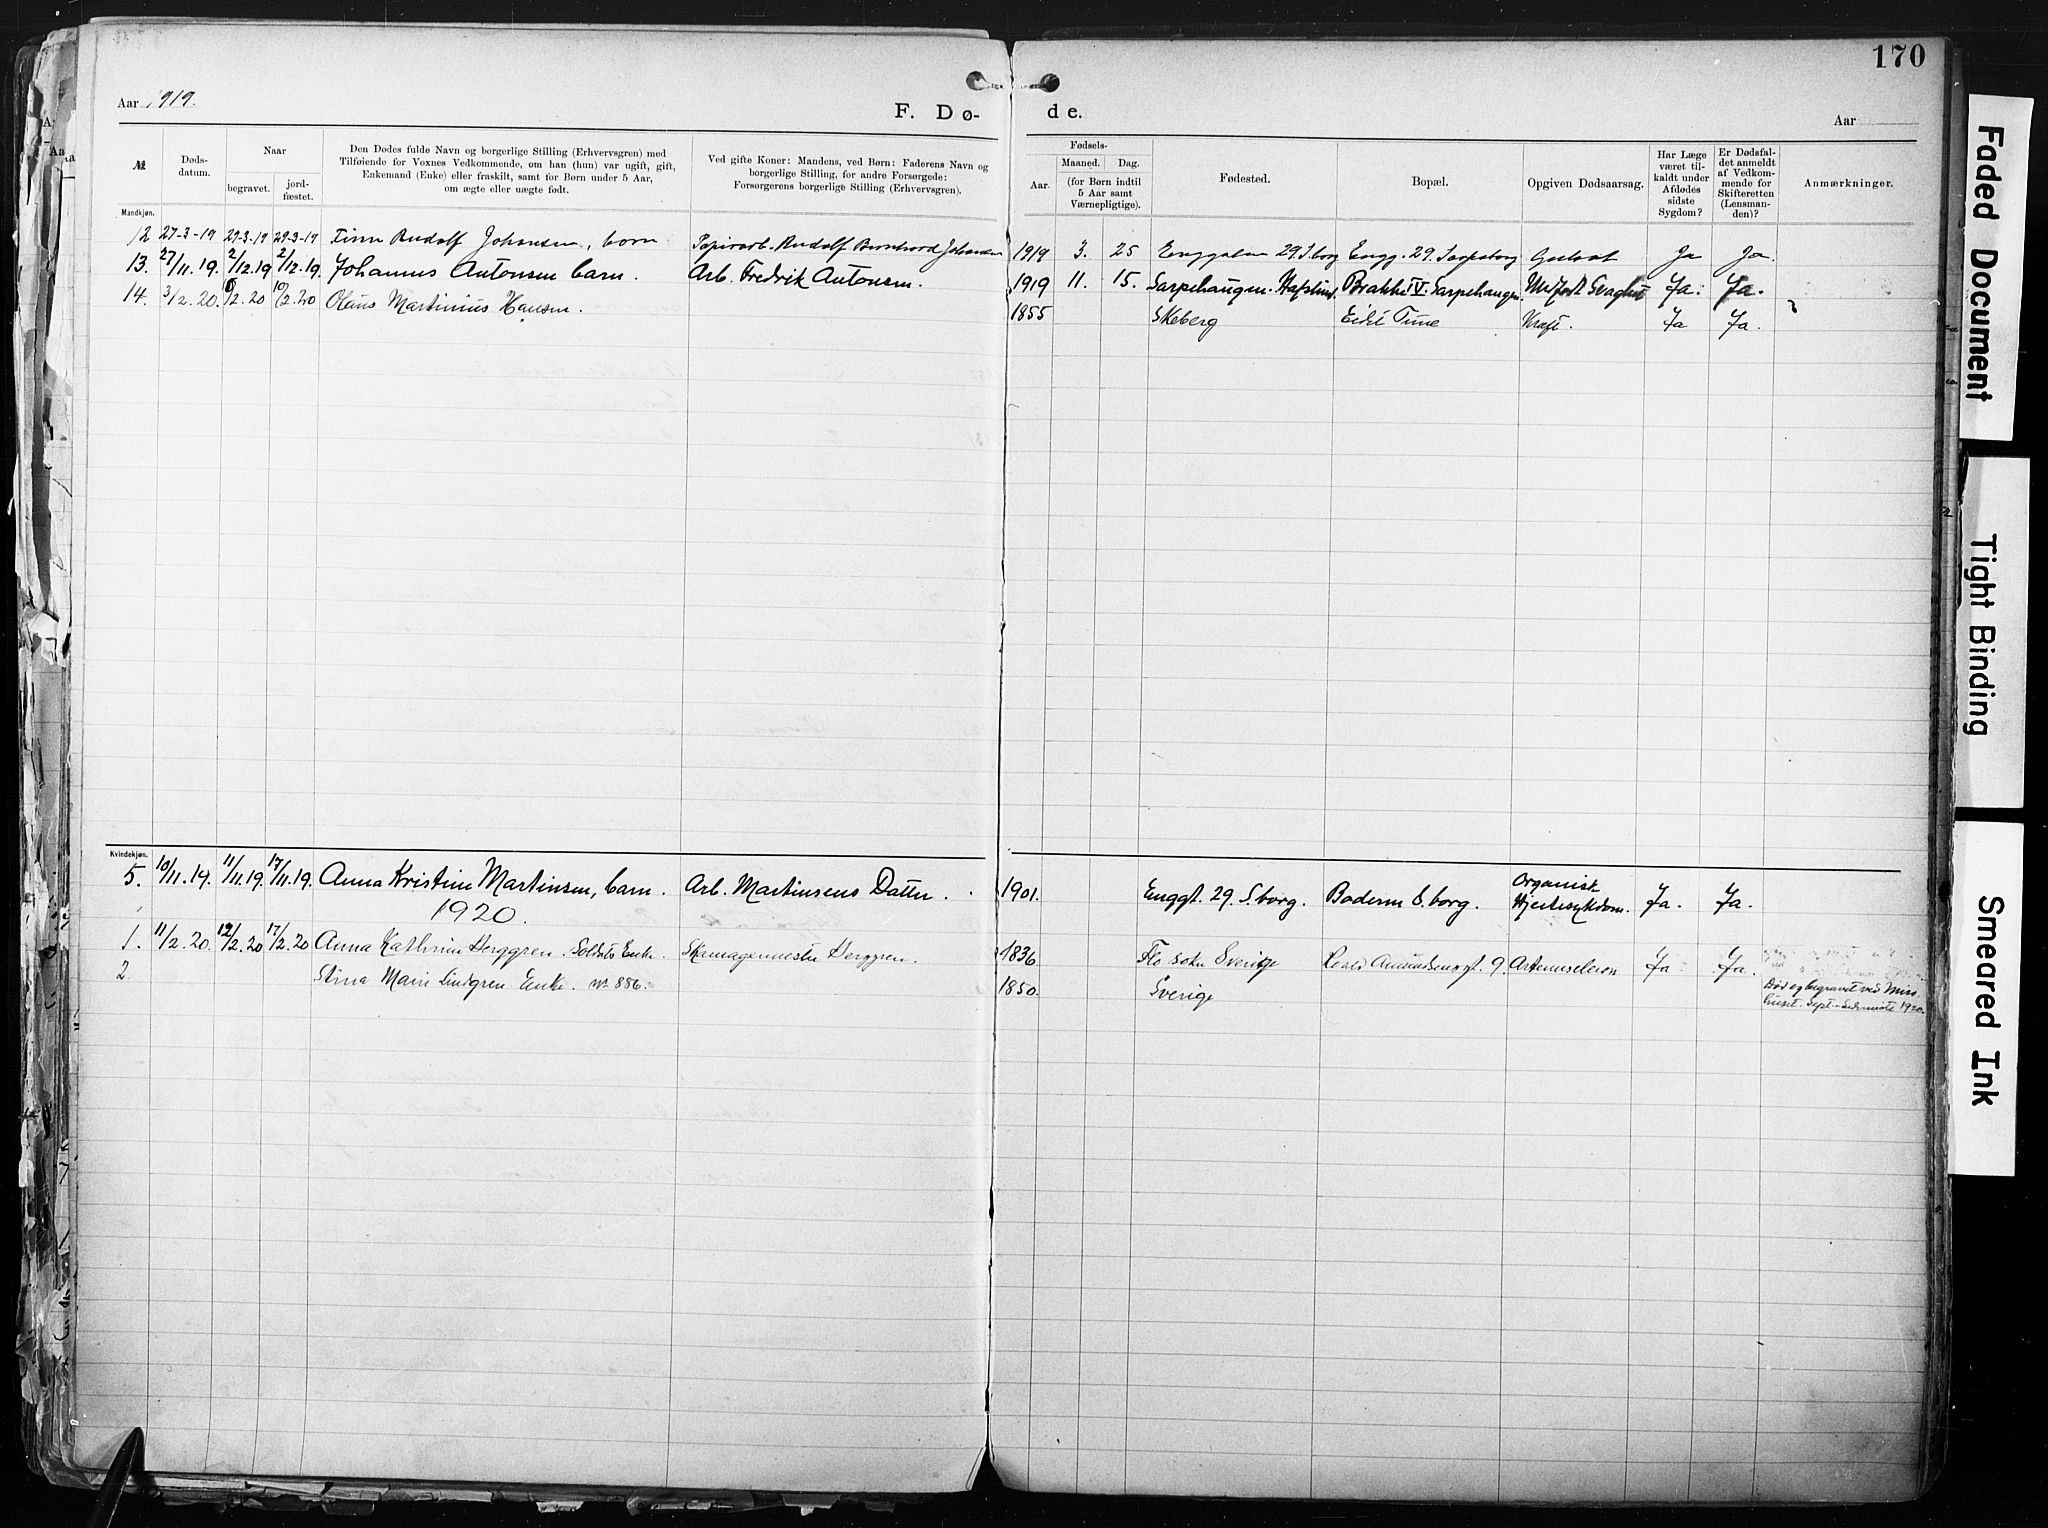 170
Aar 1919.
F. Dø-
de.
Aar
№
Døds-
datum.
Naar
begravet.
jord-
fæstet.
Den Dødes fulde Navn og borgerlige Stilling (Erhvervsgren) med
Tilføiende for Voxnes Vedkommende, om han (hun) var ugift, gift,
Enkemand (Enke) eller fraskilt, samt for Børn under 5 Aar,
om ægte eller uægte født.
Ved gifte Koner: Mandens, ved Børn: Faderens Navn og
borgerlige Stilling, for andre Forsørgede:
Forsørgerens borgerlige Stilling (Erhvervsgren).
Fødsels-
Aar.
Maaned.
Dag.
(for Børn indtil
5 Aar samt
Værnepligtige).
Fødested.
Bopæl.
Opgiven Dødsaarsag.
Har Læge
været til-
kaldt under
Afdødes
sidste
Sygdom?
Er Dødsfal-
det anmeldt
af Vedkom-
mende for
Skifteretten
(Lensman-
den)?
Anmærkninger.
Mandkjøn.
12 27-3-19 29-3-19 29-3-19 Finn Rudolf Johansen, barn Papirarb. Rudolf Bernhard Johansen 1919 3. 25 29 S.borg Engg. 29. Sarpsborg Ja Ja.
13. 27/11.19. 2/12.19 2/12.19. Johannes Antonsen barn. Arb. Fredrik Antonsen. 1919 11. 15. Sarpehaugen. Hafslund Brakke IV. Sarpehaugen. Medfødt Svaghet Ja. Ja.
14. 3/2.20. /2.20 10/2.20 Olaus Martinius Hansen. 1855 Skeberg Eidet Tune Kræft. Ja Ja.
Kvindekjøn.
5. 10/11.19. 11/11.19. 17/11.19. Anna Kristine Martinsen, barn. Arb. Martinsens Datter. 1901. Enggt. 29. S.borg. Baderen S.borg. Organisk
Hjertesykdom. Ja. Ja.
1920.
1. 11/2.20. 12/2.20 17/2.20 Anna Kathrine Berggren. Soldats Enke. Skomagermester Berggren. 1836 Flo sokn Sverige Roald Amundsensgt. 9 Ja Ja.
2. Stina Marie Lindgren Enke. nr. 886. 1850. Sverige Død og begravet ved Miss.
huset. Sept. 1920.
Faded Document
Tight Binding
Smeared Ink